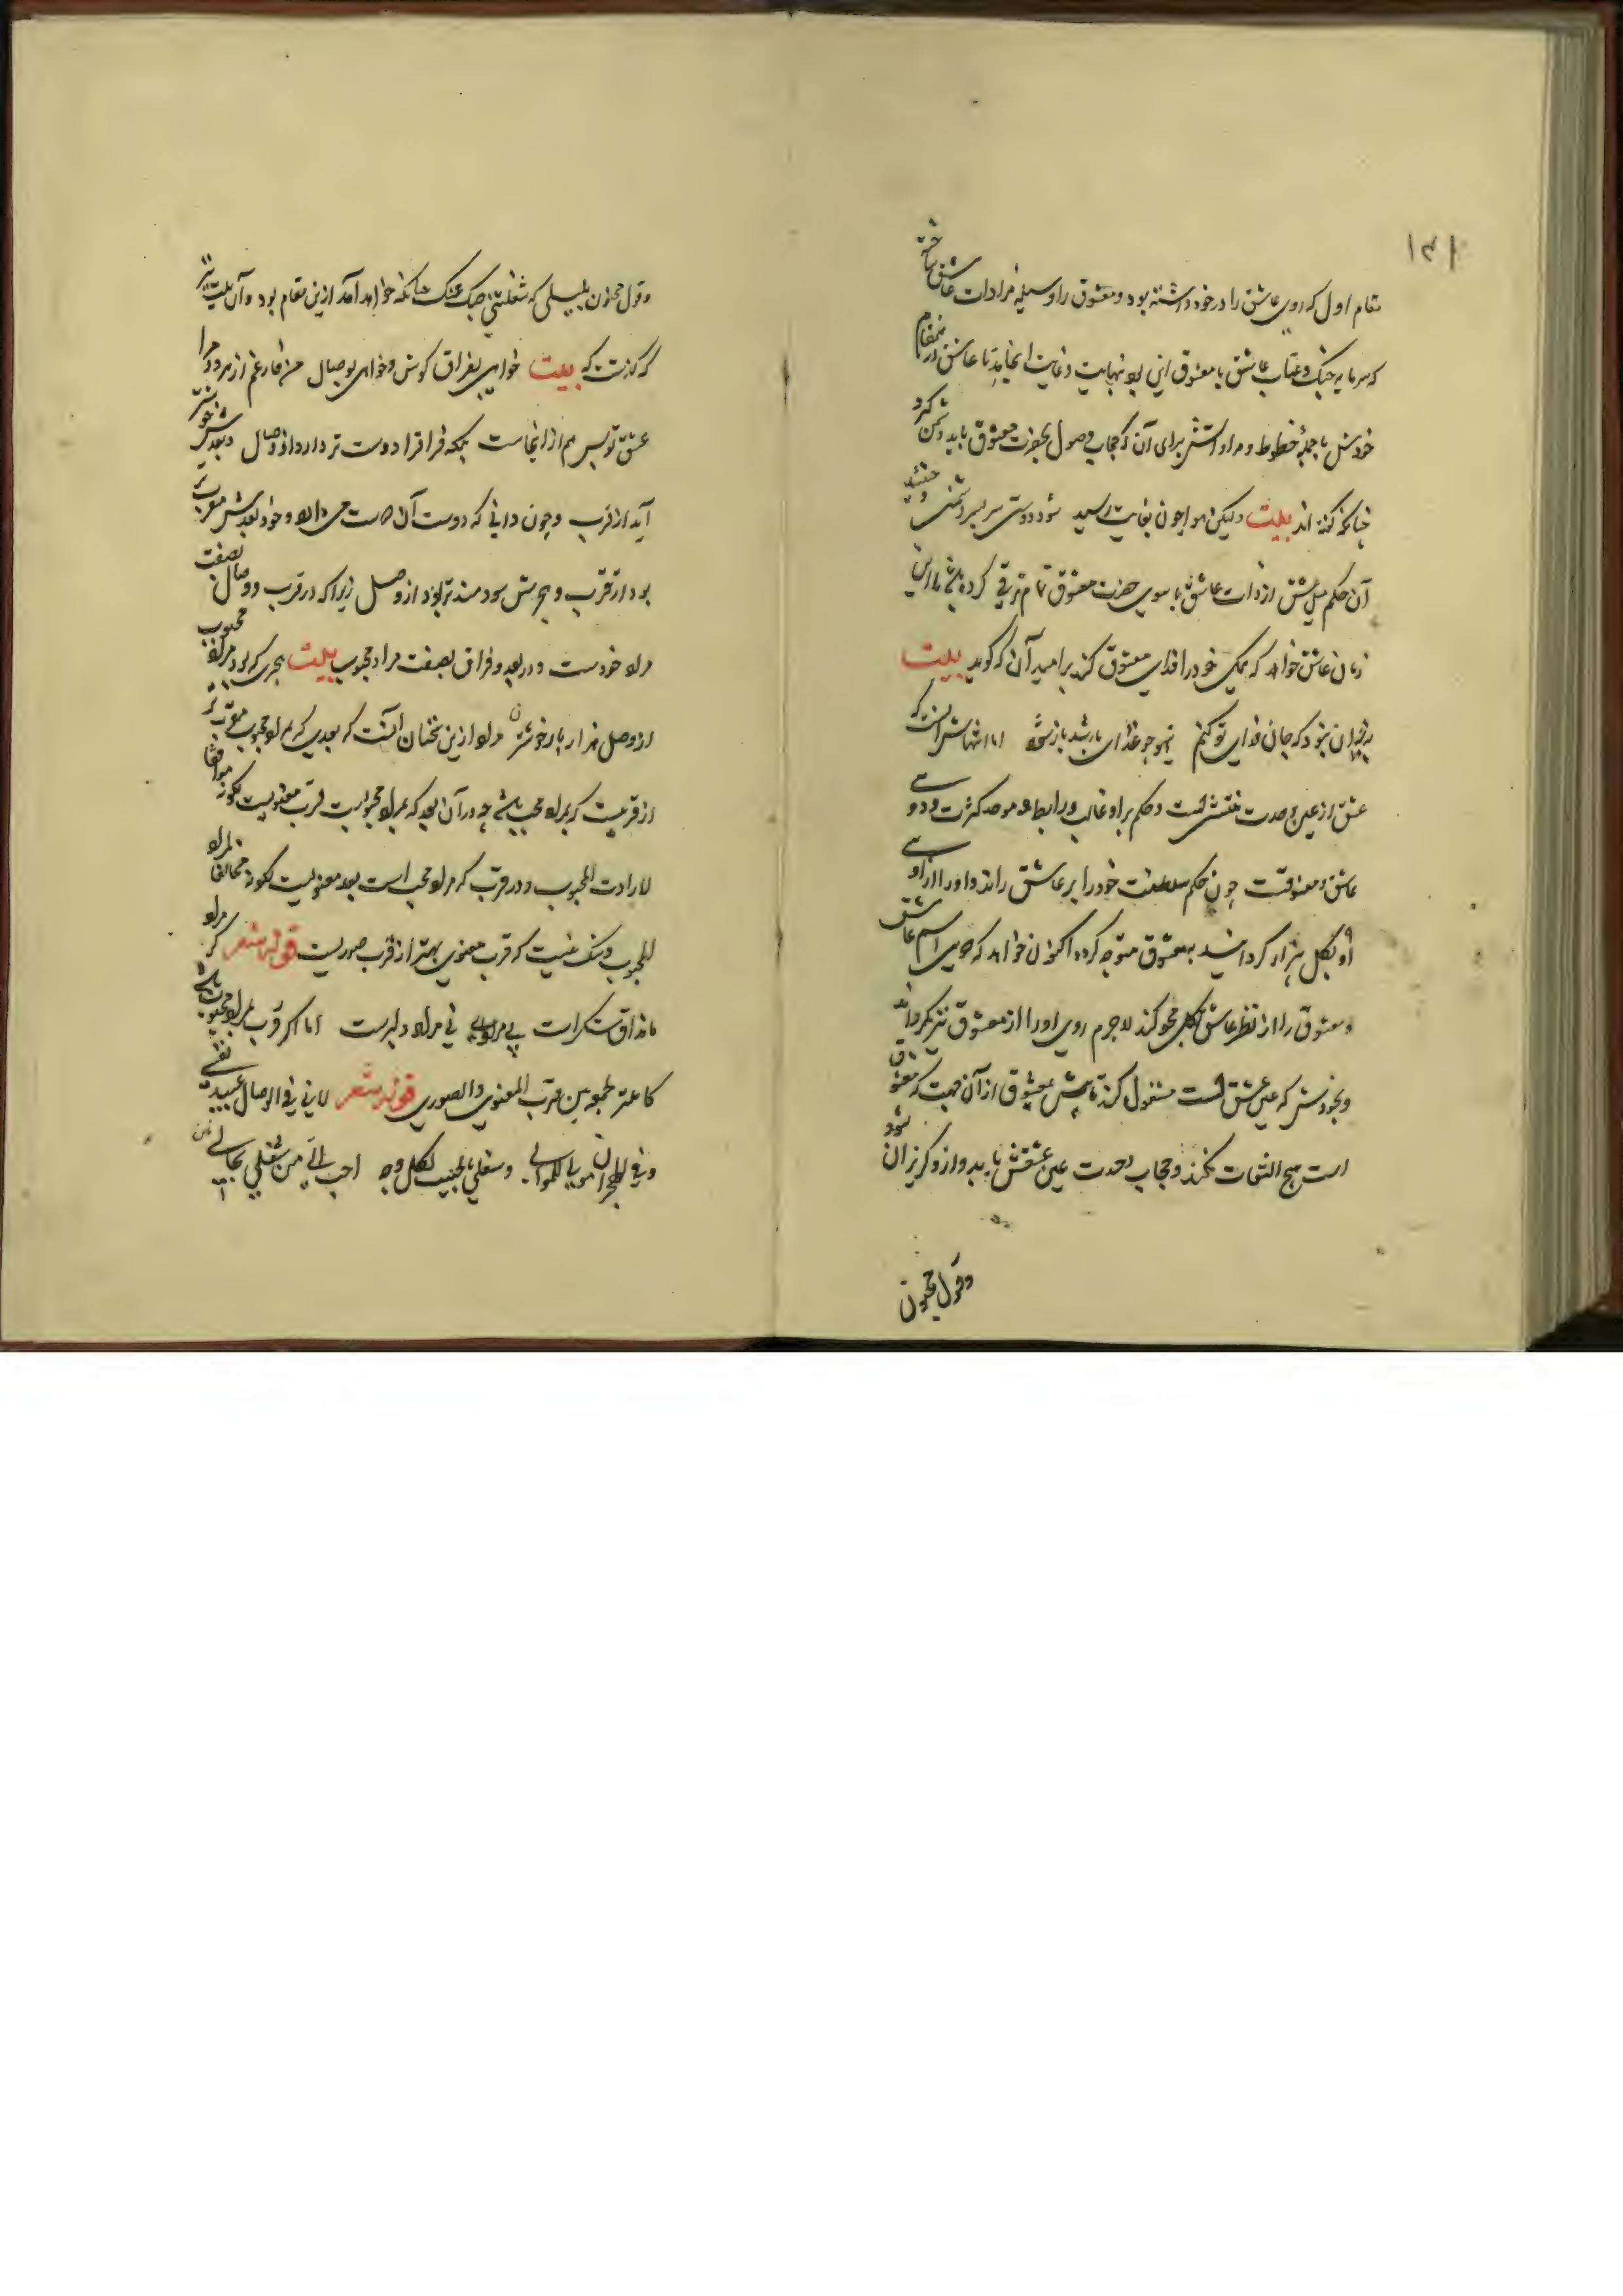 ۱۳۱
مقام اول که روی عاشق را در خود داشته بود و معشوق را وسیله مرادات عاشق ساخته
که سرمایه جنگ و عتاب عاشق با معشوق این بود نهایت و غایت انجامد تا عاشق ازین مقام
خودش با جمله حظوظ و مراداتش برای آن که حجاب وصول بحضرت معشوق باید دشمن کرد
چنانکه گفته اند بیت ولیکن هوا چون بغایت رسید شود دوستی سر بسر دشمنی
آن حکم میل عشق از ذات عاشق با سوی حضرت معشوق تمام ترقی کرده باشد تا این
زمان عاشق خواهد که همگی خود را فدای معشوق کند بر امید آن که گوید بیت
که جان فدای تو کنم اما
عشق از عین وحدت است و حکم بر او غالب و رابطه موصد کثرت و دویی
عاشق و معشوقست چون حکم سلطنت خود را بر عاشق راند و او را از اویی
او بکل بیزار گردانید بمعشوق متوجه کرد اکنون خواهد که چون اسم عاشق
و معشوق را از نظر عاشق بکلی محو کند لاجرم روی او را از معشوق نیز بگرداند
و بخودش که عین عشق است مشغول کند تا پیش معشوق از آن جهت که معشوق
است هیچ التفات نکند و حجاب وحدت عین عشقش باید و از و گریزان شود
وقول مجنون
وقول مجنون بلیلی که شغلنی حبک عنک چنانکه خواهد آمد ازین مقام بود و آن بیت نیز
که گذشت که بیت خواهی بفراق کوش و خواهی بوصال من فارغم از هر دو مرا
عشق تو بس هم از اینجاست بلکه فراق را دوست تر دارد از وصال و بعدش خوشتر
آید از قرب و چون دانی که دوست آن می دارد و خود بعدش مقرب تر
بود از تقرب و هجرش سودمند تر بود از وصل زیرا که در قرب و وصال بصفت
مراد خودست و در بعد و فراق بصفت مراد محبوب بیت هجری که بود مراد محبوب
از وصل هزار بار خوشتر مراد ازین سخنان آنست که بعدی که مراد محبوب مقرب تر
از قربیست که مراد محب باشد چه در آن بعد که مراد محبوبست قرب معنویست لکونه موافقا
لارادت المحبوب و در قرب که مراد محب است بعد معنویست لکونه مخالفا لمراد
المحبوب و شک نیست که قرب معنوی بهتر از قرب صوریست قوله شعر گر مراد
ماند اق شکرات بی مرادی نی مراد دلبرست اما اگر قرب مراد محبوب باشد
کا لجمعه بین قرب المعنوی والصوری قوله شعر لانی فی الوصال عبید نفسی
وفی الهجران مولی للموالی وشغلی بالحبیب لکل وجه احب الی من شغلی بحالی